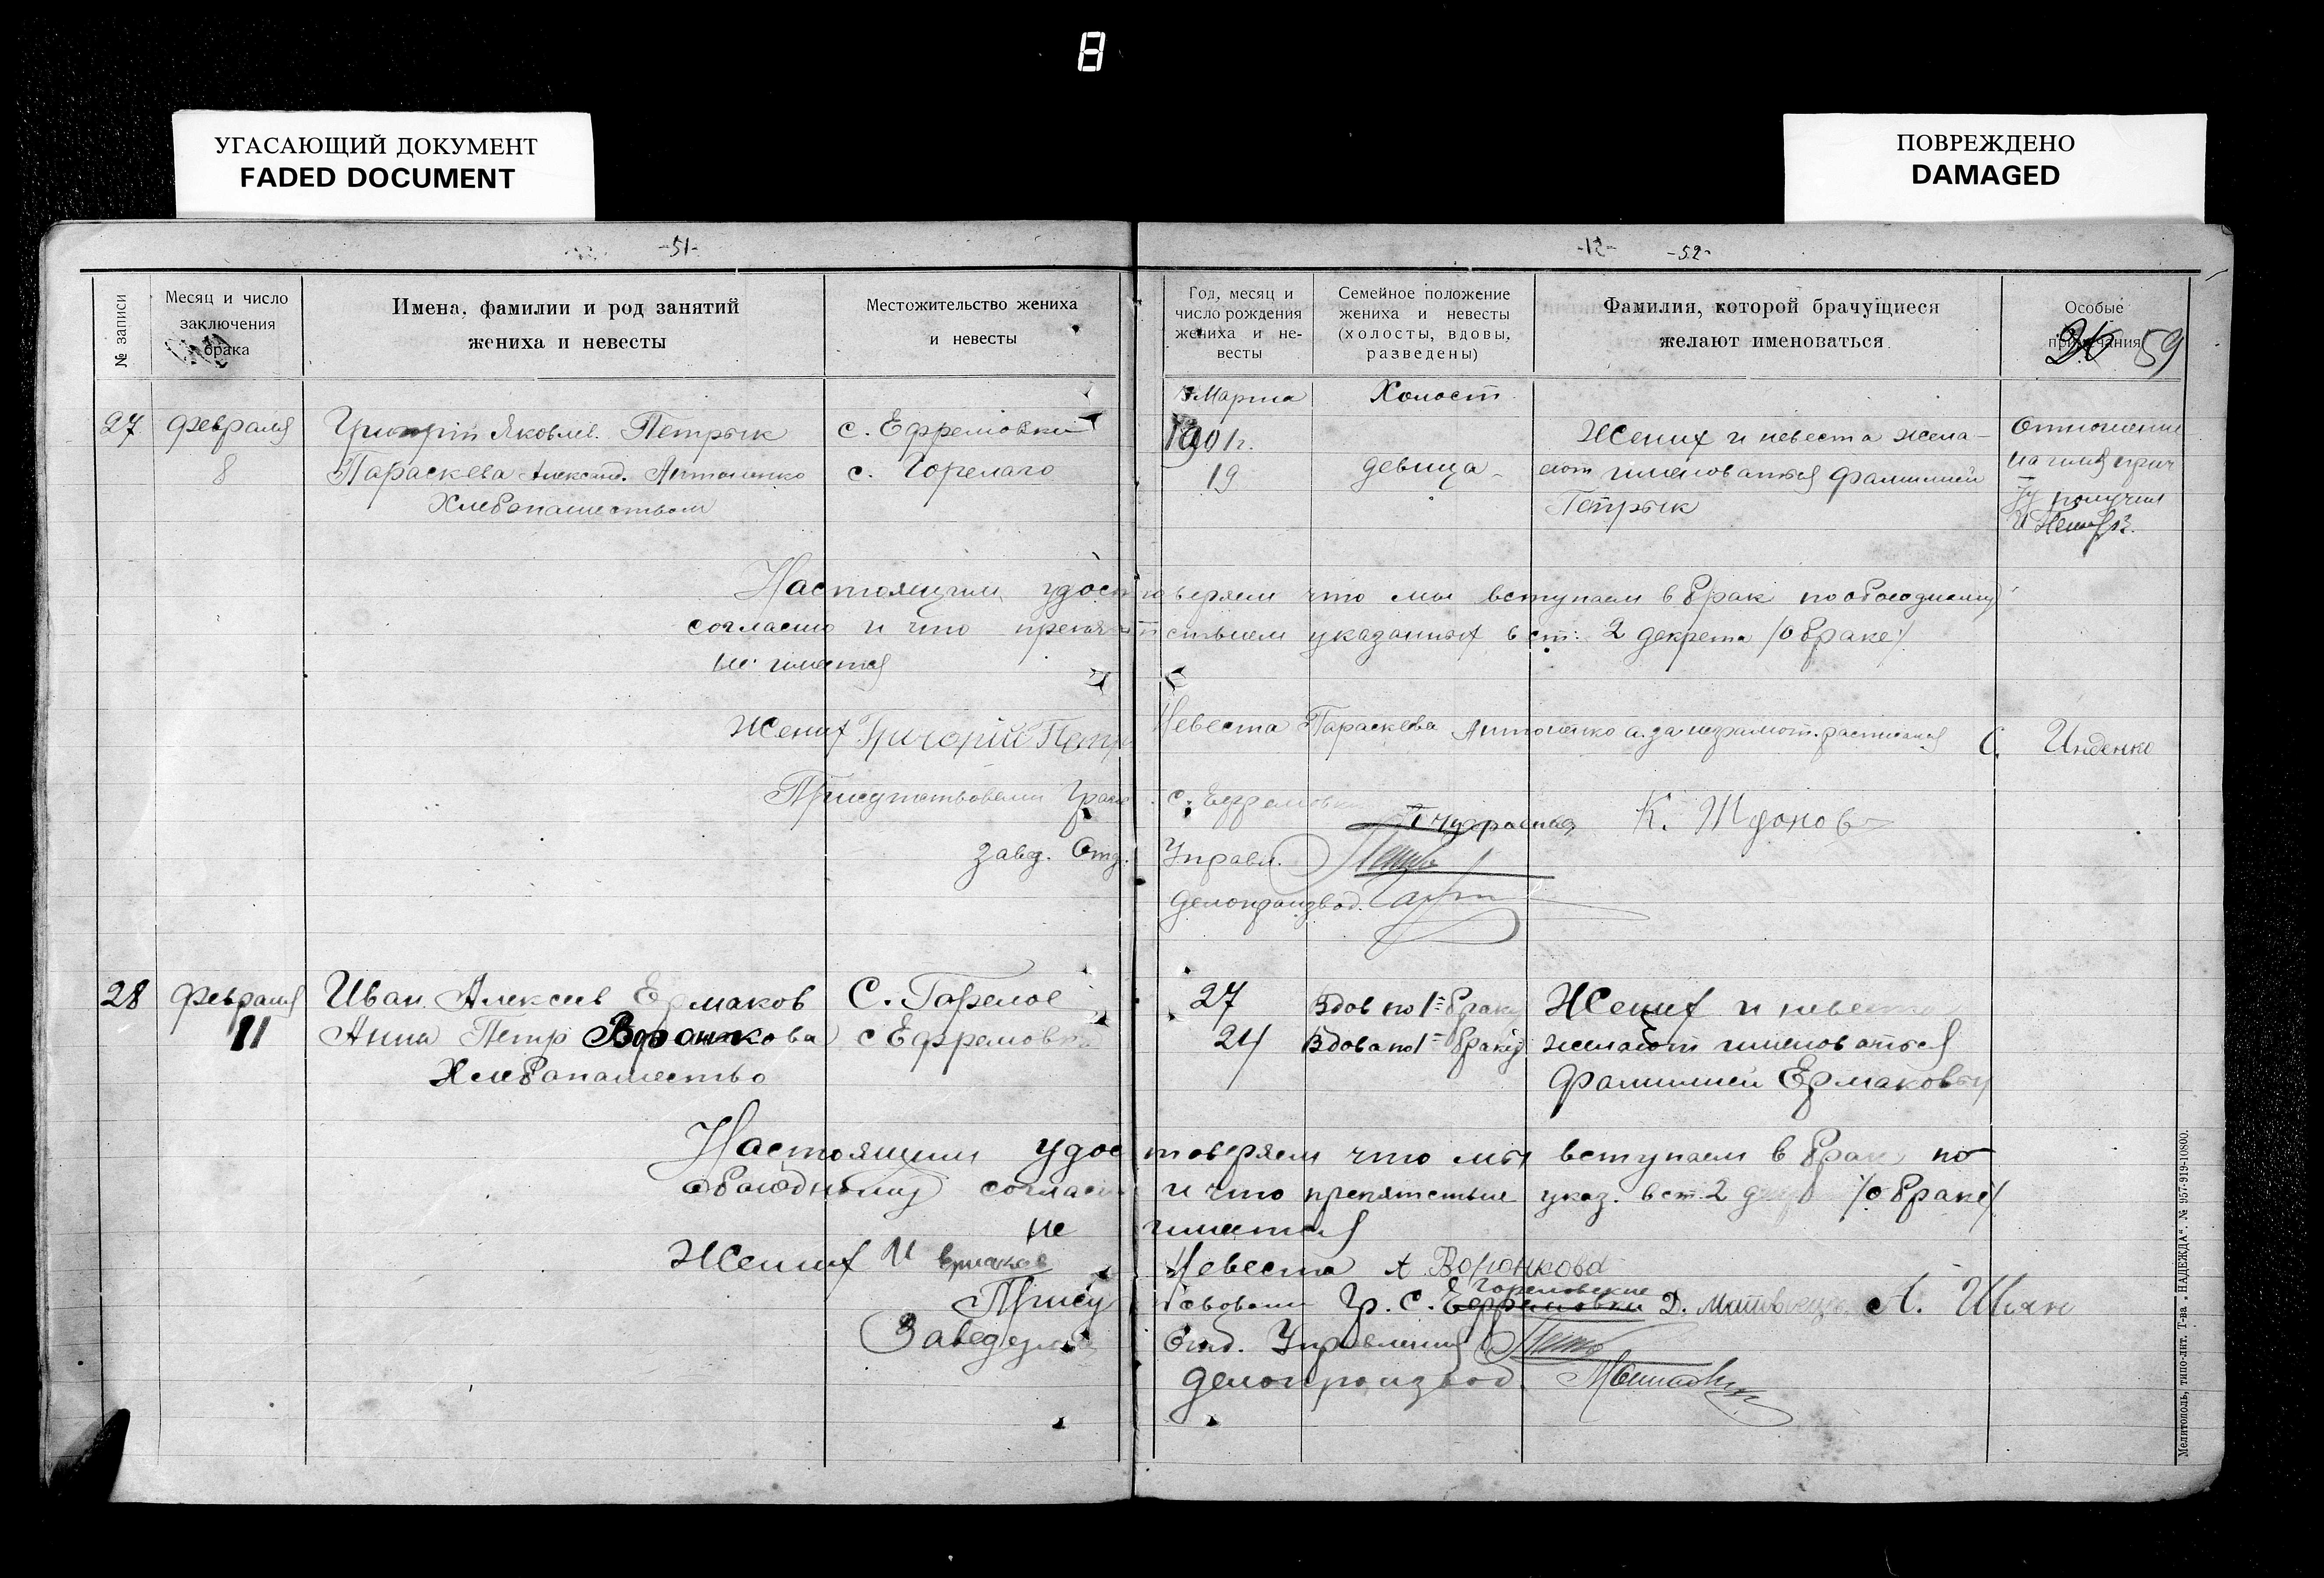 8
УГАСАЮЩИЙ ДОКУМЕНТ
FADED DOCUMENT
ПОВРЕЖДЕНО
DAMAGED
-51-
-12- -52-
№ записи
Месяц и число заключения брака
Имена, фамилии и род занятий жениха и невесты
Местожительство жениха и невесты
Год, месяц и число рождения жениха и невесты
Семейное положение жениха и невесты (холосты, вдовы, разведены)
Фамилия, которой брачущиеся желают именоваться
Особые примечания
59
Марта Холост
27 февраля Григорій Яковлев. Петрык с. Ефремовки 1901 г. Жених и невеста жела-
8 Параскева Александ. Антоненко с. Горелаго 19 девица ют именоваться фамилией
Хлебопашеством Петрык
Отношение
получил
Настоящим удостоверяем что мы вступаем в брак по обоюдному
согласию и что препятствием указанных в ст: 2 декрета /о браке/
не имется
Жених Григорій Петр Невеста Параскева Антоненко а за неграмот. расписался С.
Присутствовали Граж с. Ефремовки
К.
завд. Отд. Управл.
делопроизвод.
28 февраля Иван Алексеев Ермаков С. Горелое 27 Вдов по 1= браку Жених и невеста
11 Анна Петр Воронкова с Ефремовка 24 Вдова по 1= браку желают именоваться
Хлебопашество фамилией Ермаковы
Настоящим удостоверяем что мы вступаем в брак по
обоюдному соглас и что препятствие указ. в ст. 2 /о браке/
не имется
Жених И Ермаков Невеста А Воронкова
Гореловские
Прису тсвовали Гр. с. Ефремовки Д. А. Шиян
Заведующ Отд. Управления
делопроизвод.
Мелитополь, типо-лит. Т-ва „НАДЕЖДА“. № 957-919-10800.